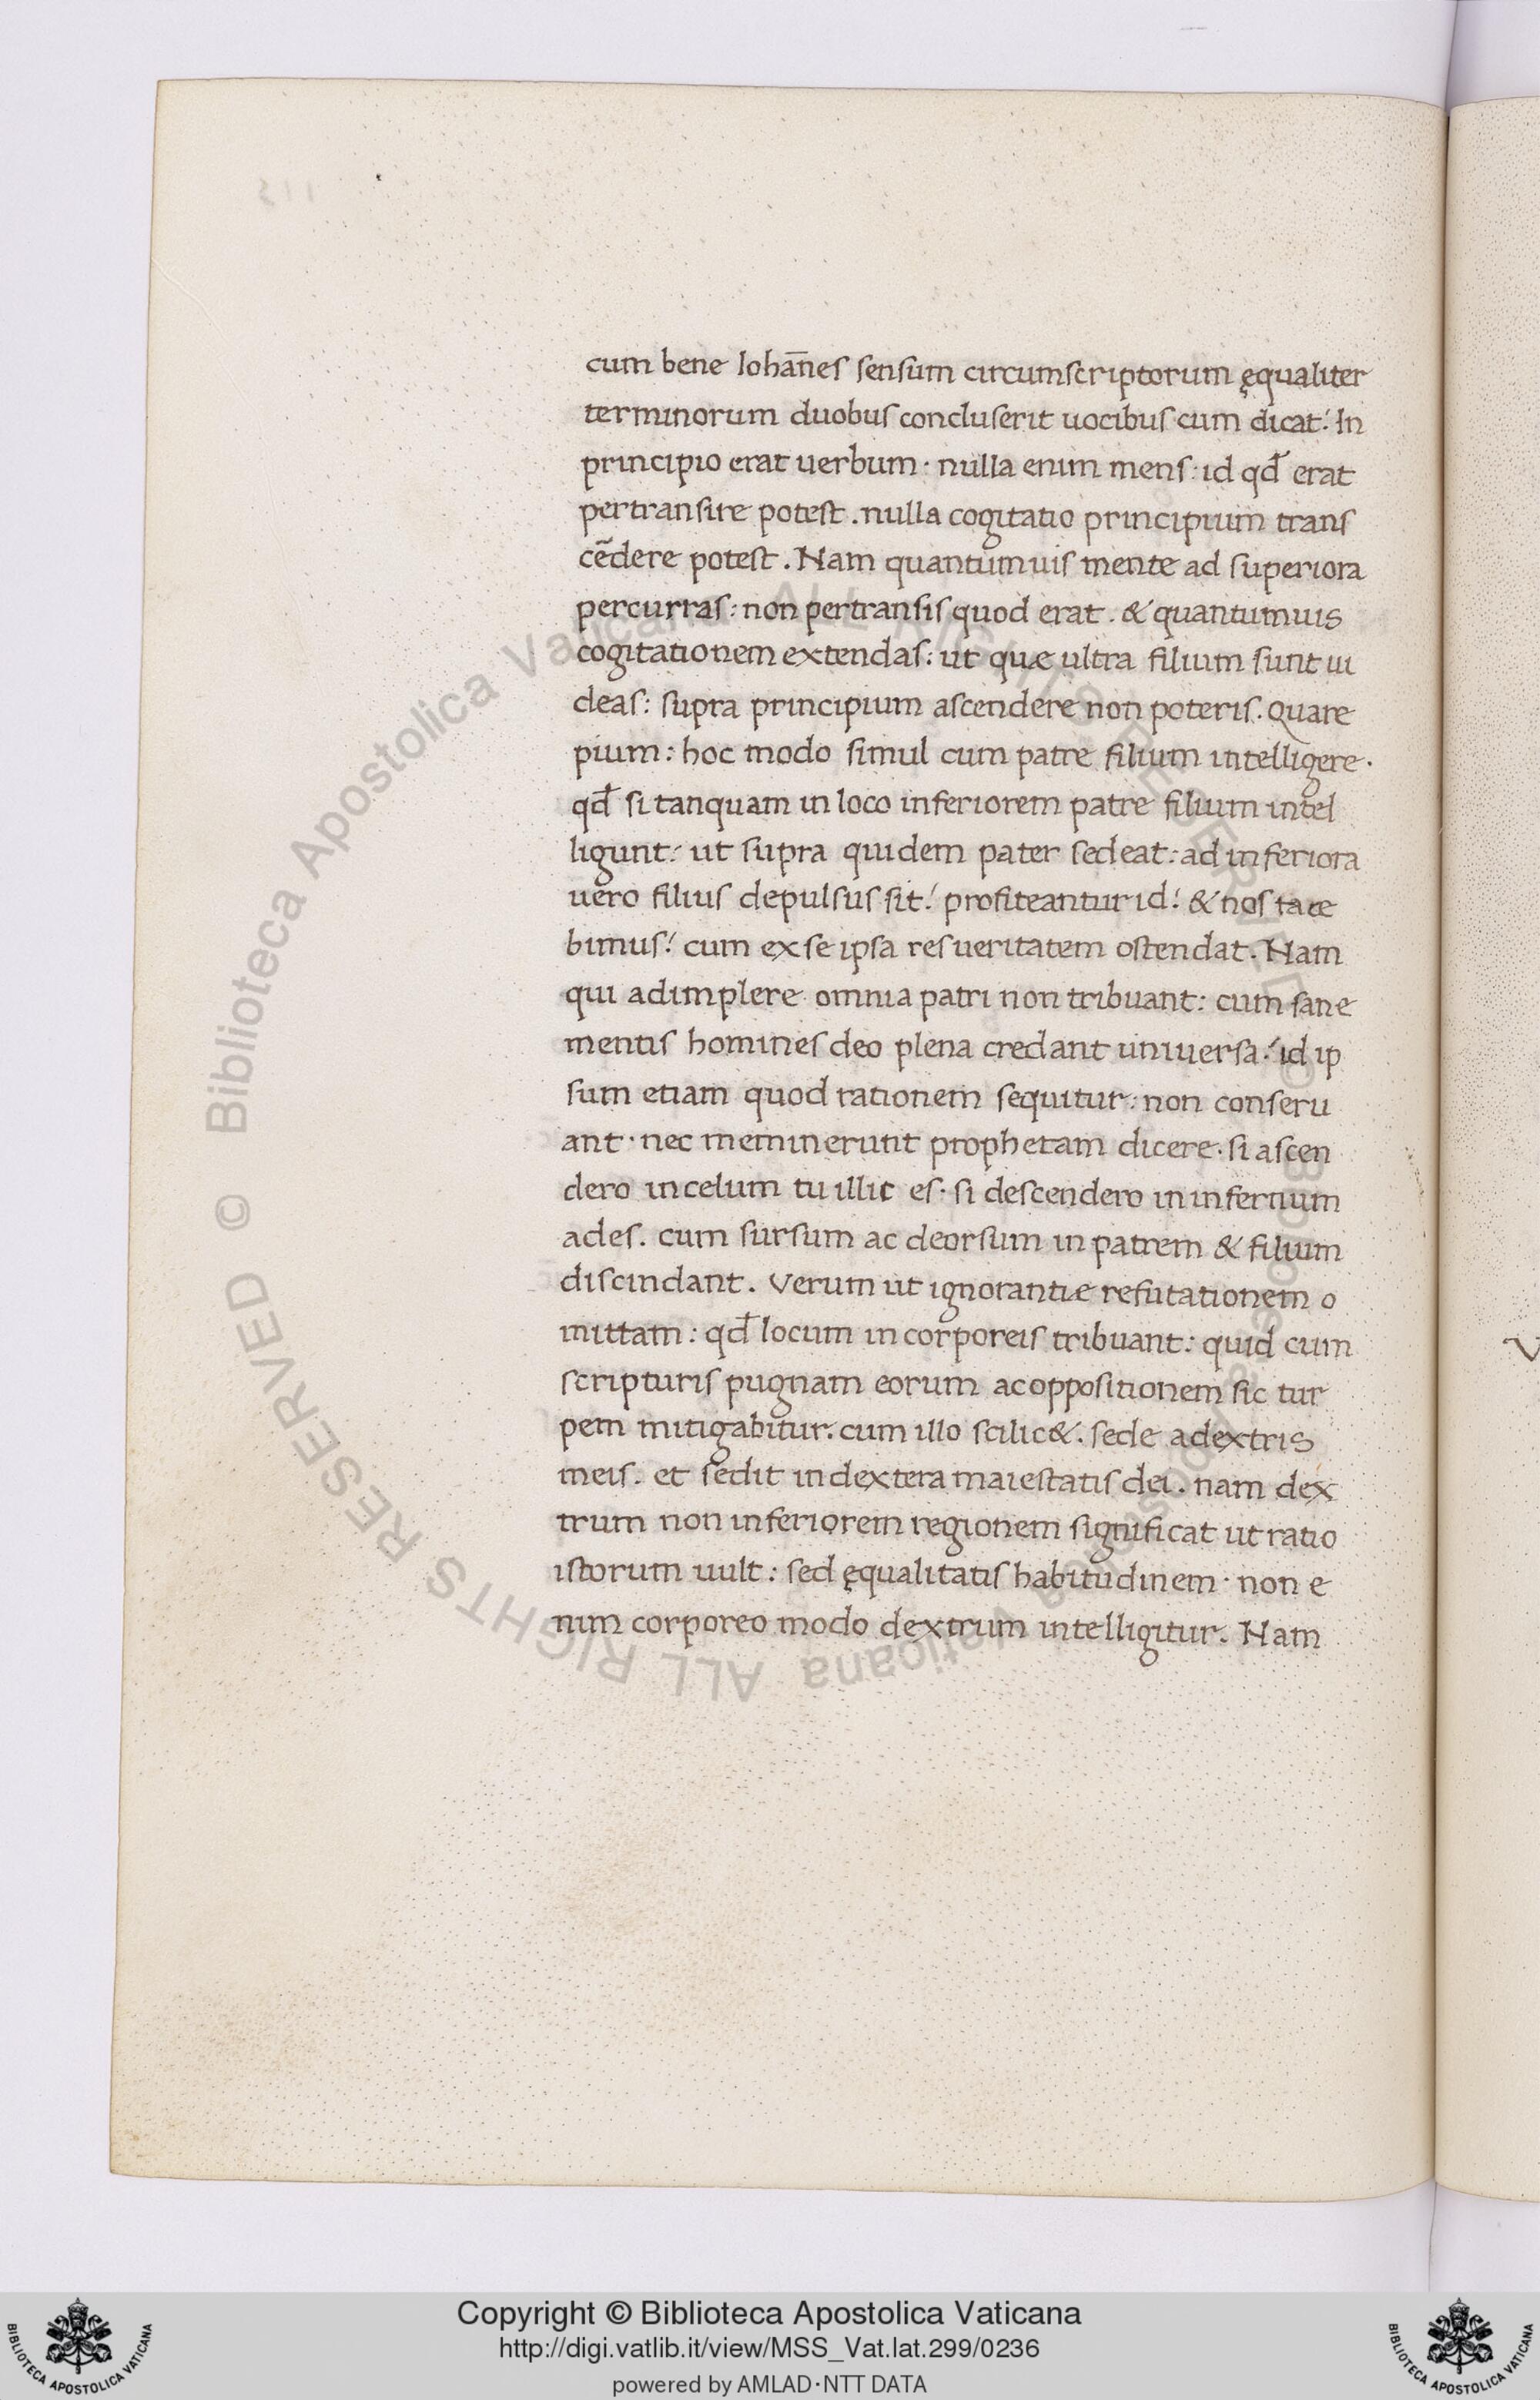 cum bene Iohan̄es sensum circumscriptorum ęqualiter
terminorum duobus concluserit uocibus cum dicat: In
principio erat uerbum. nulla enim mens: id qd̄ erat
pertransire potest. nulla cogitatio principium trans
cēdere potest. Nam quantumuis mente ad superiora
percurras: non pertransis quod erat. & quantumuis
cogitationem extendas: ut quæ ultra filium sunt ui
deas: supra principium ascendere non poteris. Quare
pium: hoc modo simul cum patre filium intelligere.
qd̄ si tanquam in loco inferiorem patre filium intel
ligunt: ut supra quidem pater sedeat: ad inferiora
uero filius depulsus sit: profiteantur id: & nos tace
bimus: cum ex se ipsa res ueritatem ostendat. Nam
qui adimplere omnia patri non tribuant: cum sane
mentis homines deo plena credant uniuersa: id ip
sum etiam quod rationem sequitur: non conseru
ant. nec meminerunt prophetam dicere. si ascen
dero in celum tu illic es. si descendero in infernum
ades. cum sursum ac deorsum in patrem & filium
discindant. Verum ut ignorantiæ refutationem o
mittam: qd̄ locum incorporeis tribuant: quid cum
scripturis pugnam eorum ac oppositionem sic tur
pem mitigabitur. cum illo scilic&. sede adextris
meis. et sedit in dextera maiestatis dei. nam dex
trum non inferiorem regionem significat ut ratio
istorum uult: sed ęqualitatis habitudinem. non e
nim corporeo modo dextrum intelligitur. Nam
© Biblioteca Apostolica Vaticana ALL RIGHTS RESERVED © Biblioteca Apostolica Vaticana ALL RIGHTS RESERVED
Copyright © Biblioteca Apostolica Vaticana
http://digi.vatlib.it/view/MSS_Vat.lat.299/0236
powered by AMLAD·NTT DATA
BIBLIOTECA APOSTOLICA VATICANA
BIBLIOTECA APOSTOLICA VATICANA